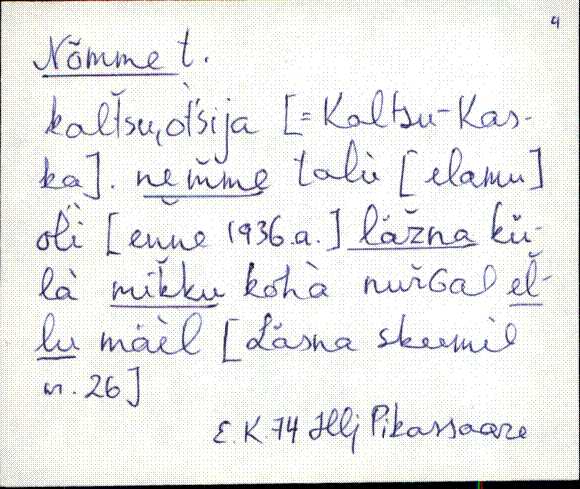 4
Nõmme t.
kaltsu,otsija [= Kaltsu-Kas-
ka]. nemme talù [elamu]
oli [enne 1936.a.] läžna kü-
là mikku kohà nurGal el-
lu mäèl [Läsna skeemil
nr. 26]
E.K. 74 Hlj Pikassaare